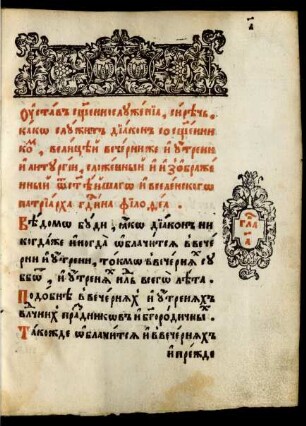 а҃
Оуставъ сщ҃еннослуженїѧ, сирѣчь,
какѡ слѹжитъ дїаконъ со сщ҃енни
комъ, велицѣй вечерни же и оутрени
и литѹргїи, сложенный и изображе
нный ѿ ст҃ѣйшагѡ и вселенскагѡ
патрїарха гдⷭ҇ина філоѳеа.
Вѣдомѡ бѹди, ꙗкѡ дїаконъ ни
когдаже иногда ѡблачитсѧ в вече
рни и оутрени, токмѡ в вечернѧ
и оутренѧ всегѡ лѣта.
Подобнѣ в вечернѧхъ и оутренѧхъ
влⷣчнихъ праздникѡвъ и бг҃ородичныⷯ
Такожде ѡблачитсѧ и в вечернѧхъ
и прежде
глава
а҃